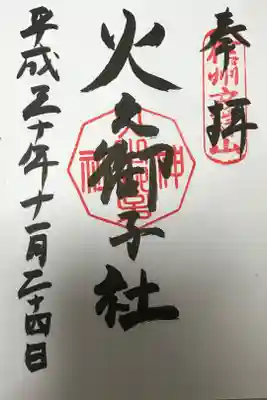 奉拝
信州戸隠山
火之御子社
平成三十年十一月二十四日